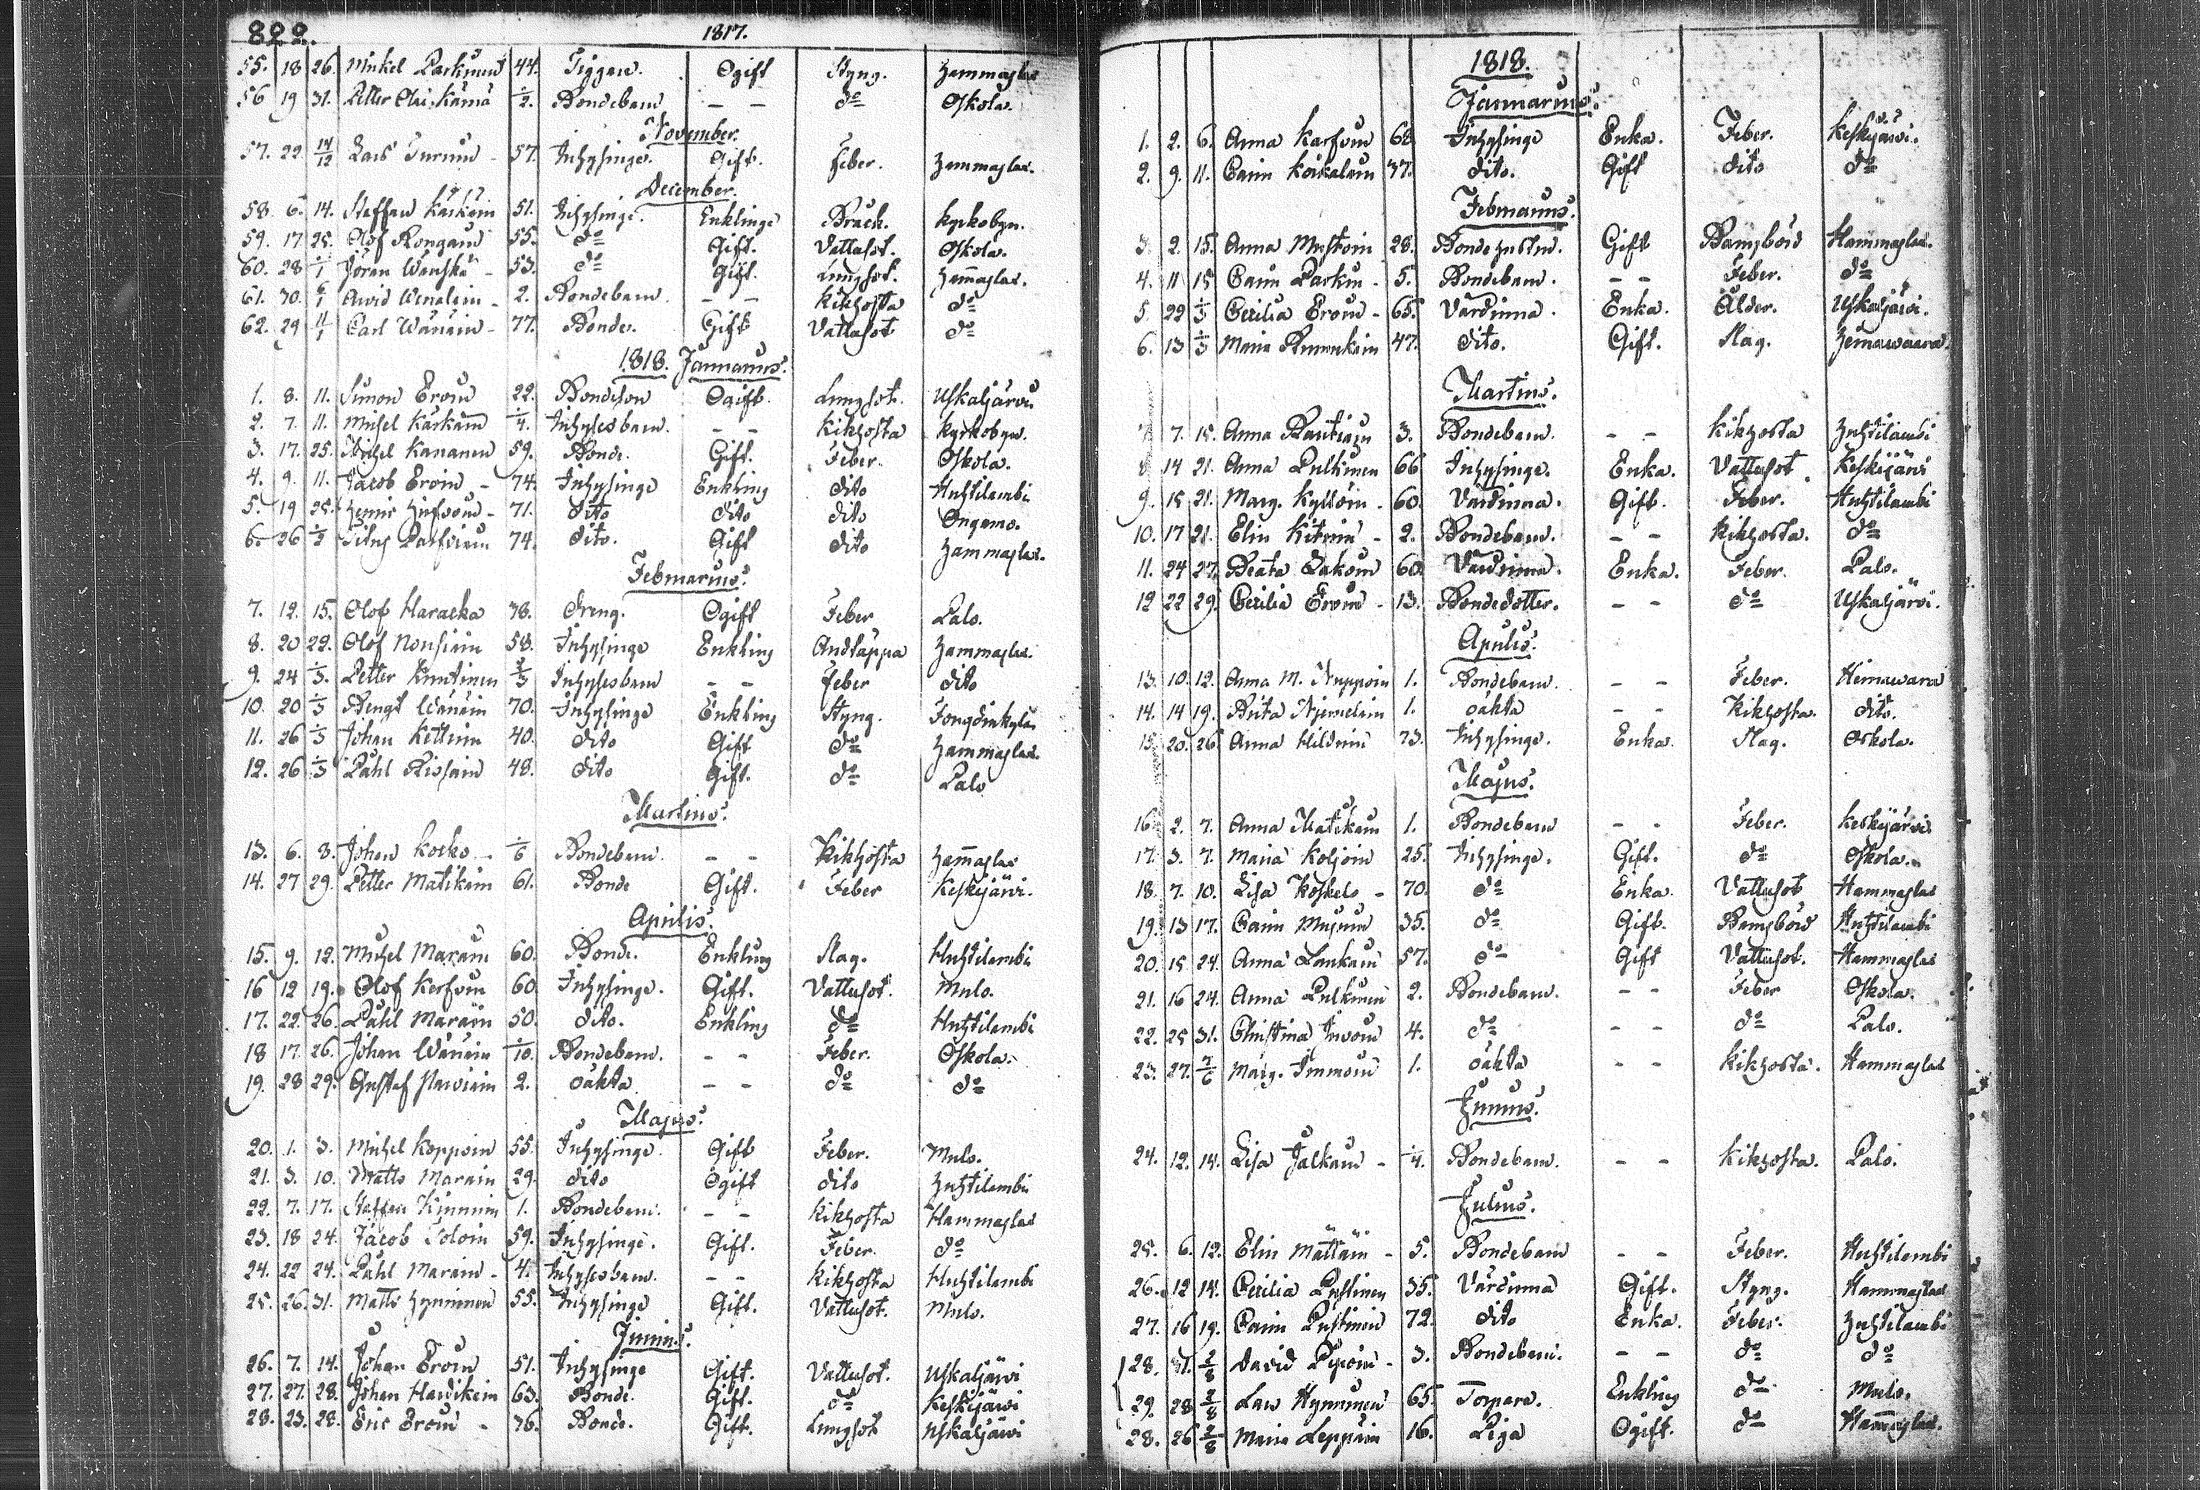 822. 1817.
55. 18 26. Mickel Parkinen 44. Tiggare. Ogift Styng. Hammaslax
56 19 31. Petter Olai. Kämä 1/2. Bondebarn — — do Oskola.
November.
57. 22 14/12 Lars Turun - 57. Inhysinge. Gift. Feber. Hammaslax.
December.
58 6. 14. Staffan Käskein 51. Inhysinge. Enklinge Bråck. Kyrkobyn.
59. 17 25. Olof Rongain 55. do Gift. Vattusot. Oskola.
60. 28 1/1 Jöran Wänskä - 53. do Gift. Lungsot. Hammaslax.
61. 30. 6/1 Arvid - 2. Bondebarn. — — Kikhosta do
62. 29 11/1 Carl Wänäin - 77. Bonde. Gift Vattusot do
1818. Januarius.
1. 8. 11. Simon Eroin 22. Bondeson Ogift. Lungsot. Uskaljärvi
2. 7. 11. Michel Kärkäin 1/4. Inhysesbarn. — — Kikhosta Kyrkobyn.
3. 17. 25. Michel Kananen 59. Bonde. Gift. Feber. Oskola.
4. 9. 11. Jacob Eroin - 74. Inhysinge Enkling dito Huhtilambi
5. 19 25. Henric Hirfvoin - 71. dito dito dito Onqamo.
6. 26 1/2 74. dito. Gift dito Hammaslax.
Februarius.
7. 12. 15. Olof Haracka 38. Dreng. Ogift Feber Palo.
8. 20 22. Olof Nousiain 58. Inhysinge Enkling Andtäppa Hammaslax.
9. 24 1/3. Petter Knutinen 2/3 Inhysesbarn — — Feber dito
10. 20 1/3 Bengt Wänäin 70. Inhysinge Enkling Styng.
11. 26 1/3 Johan Kettuin 40. dito Gift do Hammaslax.
12. 26 1/3 Påhl Rissain 48. dito Gift. do Palo
Martius.
13. 6. 8. Johan Kosko - 1/6 Bondebarn. — — Kikhosta Hammaslax
14. 27 29. Petter Matikain 61. Bonde Gift. Feber Keskijärvi.
Aprilis.
15. 9. 12. Michel Marain 60. Bonde. Enkling Slag. Huhtilambi
16 12 19. Olof Kerfvin 60 Inhysinge. Gift. Vattusot. Mulo.
17. 22. 26. Påhl Marain 50. dito. Enkling do Huhtilambi
18 17. 26. Johan Wänäin 1/10. Bondebarn. — — Feber. Oskola.
19. 28 29. Gustaf 2. oäkta — — do do
Majus.
20. 1. 3. Michel Koppoin 55. Inhysinge. Gift Feber. Mulo.
21. 3. 10. Matts Marain 29. dito Ogift dito Huhtilambi
22. 7. 17. Staffan Kinnuin 1. Bondebarn. — — Kikhosta Hammaslax
23. 18 24. Jacob Toloin 59. Inhysinge. Gift. Feber. do
24. 22 24. Påhl Marain - 4. Inhysesbarn. — — Kikhosta Huhtilambi
25. 26. 31. Matts Hynninen 55. Inhysinge Gift. Vattusot. Mulo.
Junius.
26. 7. 14. Johan Eroin 51. Inhysinge Gift. Vattusot. Uskaljärvi
27. 27. 28. Johan Havikain 63. Bonde. Gift. do Keskijärvi
28. 23. 28. Eric Eroin - 36. Bonde. Gift. Lungsot Uskaljärvi
1818.
Januarius.
1. 2. 6. Anna Karfvin 68 Inhysinge Enka. Feber. Keskijärvi.
2. 9. 11. Carin Koikalain 37. dito. Gift dito do
Februarius.
3. 2. 15. Anna Mustoin 28. Bondehustru. Gift Barnsbörd Hammaslax.
4. 11 15 Carin Parkin - 5. Bondebarn. — — Feber. do
5. 22 1/3 Cecilia Eroin - 65. Värdinna. Enka. Ålder. Uskaljärvi.
6. 13 1/3 Maria 47. dito. Gift. Slag. Hemawaara.
Martius.
7 7. 15. Anna Rautiain 3. Bondebarn. — — Kikhosta Huhtilambi
8 14 21. Anna Pulkinen 66 Inhysinge. Enka. Vattusot. Keskijärvi
9. 15 21. Marg. Kyllöin - 60. Värdinna. Gift. Feber. Huhtilambi
10. 17 21. Elin Kituin - 2. Bondebarn. — — Kikhosta. do
11. 24 27. Beata Lakoin 60. Värdinna. Enka. Feber. Palo.
12 22 29. Cecilia Eroin - 13. Bondedotter. — — do Uskaljärvi.
Aprilis.
13. 10. 12. Anna M. Nuppoin 1. Bondebarn. — — Feber. Heinawara
14. 14 19. Brita 1. oäkta — — Kikhosta. dito.
15. 20. 26 Anna Hilduin 73. Inhysinge. Enka. Slag. Oskola.
Majus.
16 2. 7. Anna Matikain 1. Bondebarn — — Feber. Keskijärvi
17. 3. 7. Maria Koljoin 25. Inhysinge. Gift. do Oskola.
18. 7. 10. Lisa Koskelo - 70. do Enka. Vattusot Hammaslax
19. 13 17. Carin 35. do Gift. Barnsbörd Huhtilambi
20. 15 24. Anna Laukain 57. do Gift Vattusot. Hammaslax
21. 16 24. Anna Pulkinen 2. Bondebarn. — — Feber Oskola.
22. 25 31. Christina 4. do — — do Palo.
23. 27. 7/6 Marg. Immoin 1. oäkta — — Kikhosta. Hammaslax
Junius.
24. 12. 14. Lisa Jalkain - 1/4. Bondebarn. — — Kikhosta. Palo.
Julius.
25. 6. 12. Elin Mattain - 5. Bondebarn — — Feber. Huhtilambi
26. 12 14. Cecilia Pustinen 35. Värdinna Gift. Styng. Hammaslax
27. 16 19. Carin Pustinen 72. dito Enka. Feber. Huhtilambi
28. 31. 2/8 David - 3. Bondebarn. — — do do
29. 28 2/8 Lars Hynninen 65. Torpare. Enkling do Mulo.
28. 26 2/8 Maria Leppäin 16. Piga Ogift. do Hammaslax.